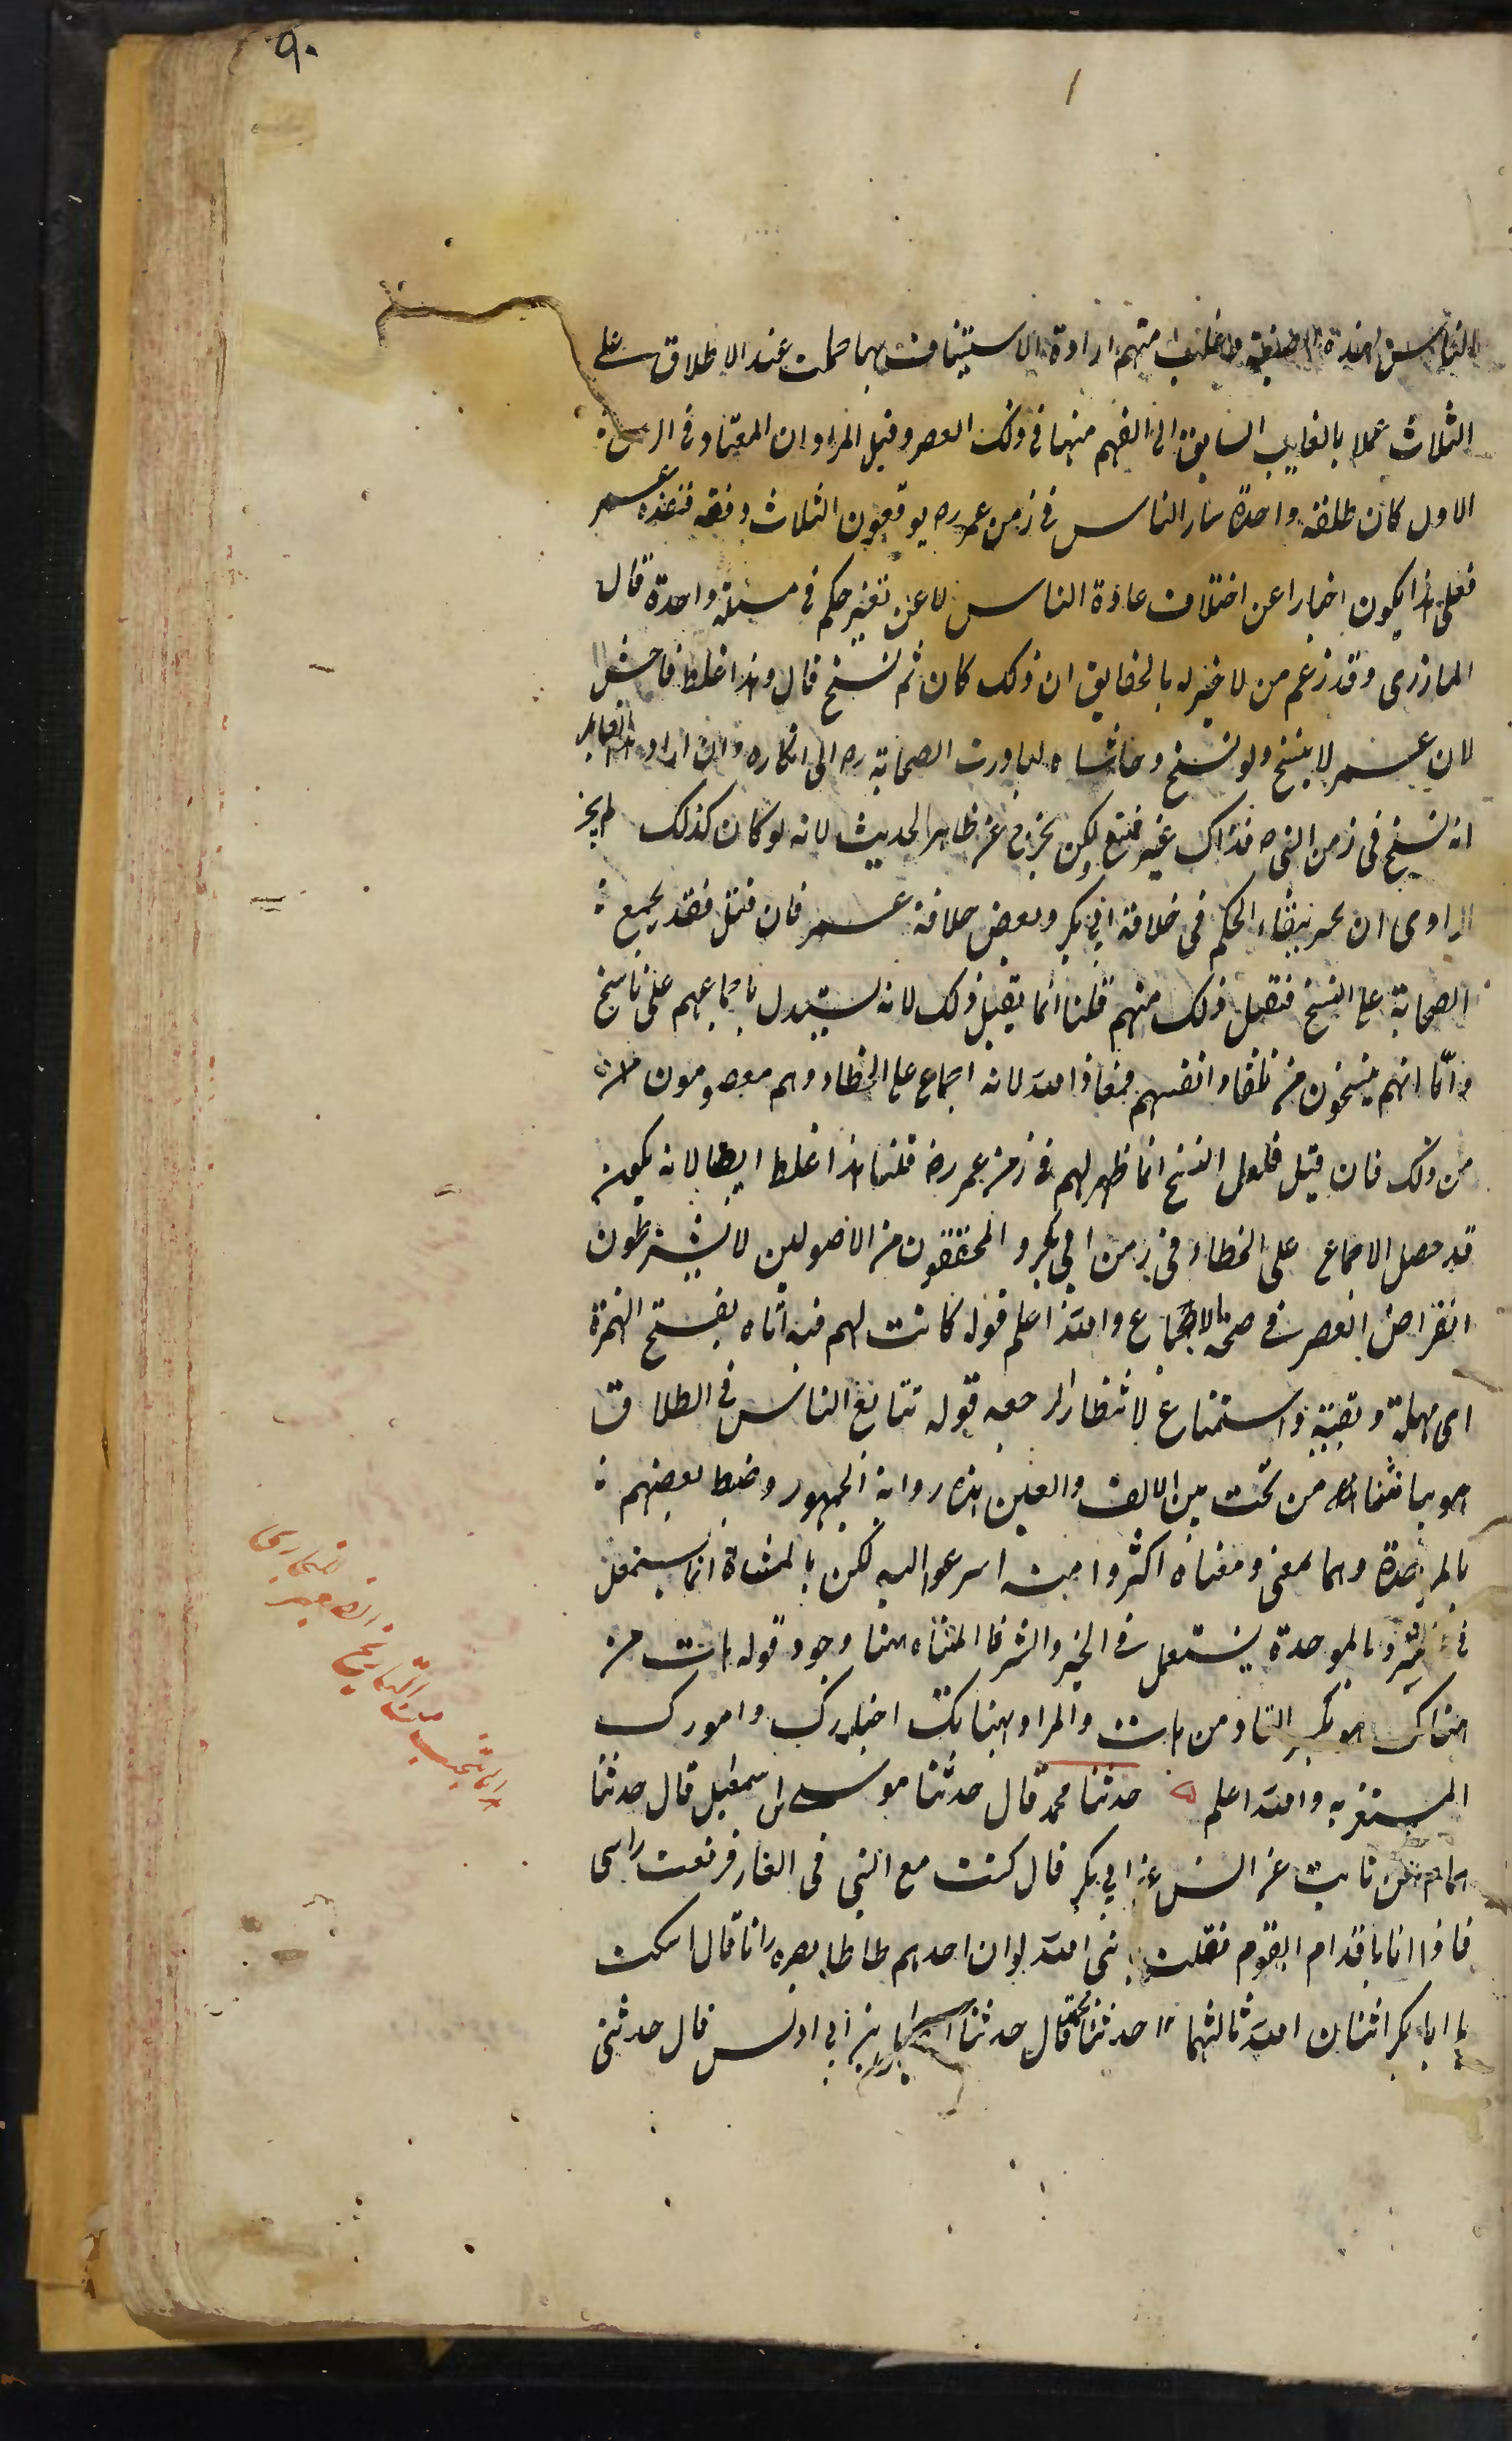 ٩٠
الناس بهذه الصيغة وغلب منهم ارادة الاستيناف بها حملت عند الاطلاق على
الثلاث عملا بالغالب السابق الى الفهم منها فى ذلك العصر وقيل المراد ان المعتاد فى الزمن
الاول كان طلقة واحدة صار الناس فى زمن عمر رض يوقعون الثلاث دفعة فنفذه عمر
فعلى هذا يكون اخبارا عن اختلاف عادة الناس لا عن تغير حكم فى مسئلة واحدة قال
المازرى وقد زعم من لا خبر له بالحقايق ان ذلك كان ثم نسخ قال وهذا غلط فاحش
لان عمر لا ينسخ ولو نسخ وحاشاه لبادرت الصحابة رض الى انكاره وان اراد هذا القايل
انه نسخ فى زمن النبى ص فذاك غير ممتنع ولكن يخرج عن ظاهر الحديث لانه لو كان كذلك لم يجز
الراوى ان يخبر ببقاء الحكم فى خلافة ابى بكر وبعض خلافة عمر فان قيل فقد يجمع
الصحابة على النسخ فتقبل ذلك منهم قلنا انما يقبل ذلك لانه يستدل باجماعهم على ناسخ
واما انهم ينسخون من تلقاء انفسهم فمعاذ الله لانه اجماع على الخطاء وهم معصومون
من ذلك فان قيل فلعل النسخ انما ظهر لهم فى زمن عمر رض قلنا هذا غلط ايضا لانه يكون
قد حصل الاجماع على الخطاء فى زمن ابى بكر والمحققون من الاصوليين لا يشترطون
انقراض العصر فى صحة الاجماع والله اعلم قوله كانت لهم فيه اناة بفتح الهمزة
اى مهلة وبقية واستمتاع لانتظار الرجعه قوله تتايع الناس فى الطلاق
هو بيا مثناة من تحت بين الالف والعين هذه رواية الجمهور وضبط بعضهم
بالموحدة وهما بمعنى ومعناه اكثروا منه اسرعوا اليه لكن بالمثناة انما يستعمل
فى الشر وبالموحدة يستعمل فى الخير والشر فالمثناه هنا اجود قوله هات من
هناتك هو بكسر التاء من هات والمراد بهناتك اخبارك وامورك
المستغربه والله اعلم ه حدثنا محمد قال حدثنا موسى بن اسمعيل قال حدثنا
همام عن ثابت عن انس عن ابى بكر قال كنت مع النبى فى الغار فرفعت راسى
فاذا انا باقدام القوم فقلت يا نبى الله لو ان احدهم طاطا بصره رانا قال اسكت
يا ابا بكر اثنان الله ثالثهما حدثنا محمد قال حدثنا اسمعيل بن ابى اويس قال حدثنى
انتخب من التاريخ الصغير للبخارى